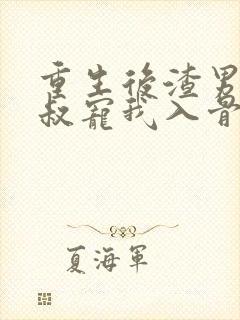 重生後渣男
叔寵我入骨
夏海軍